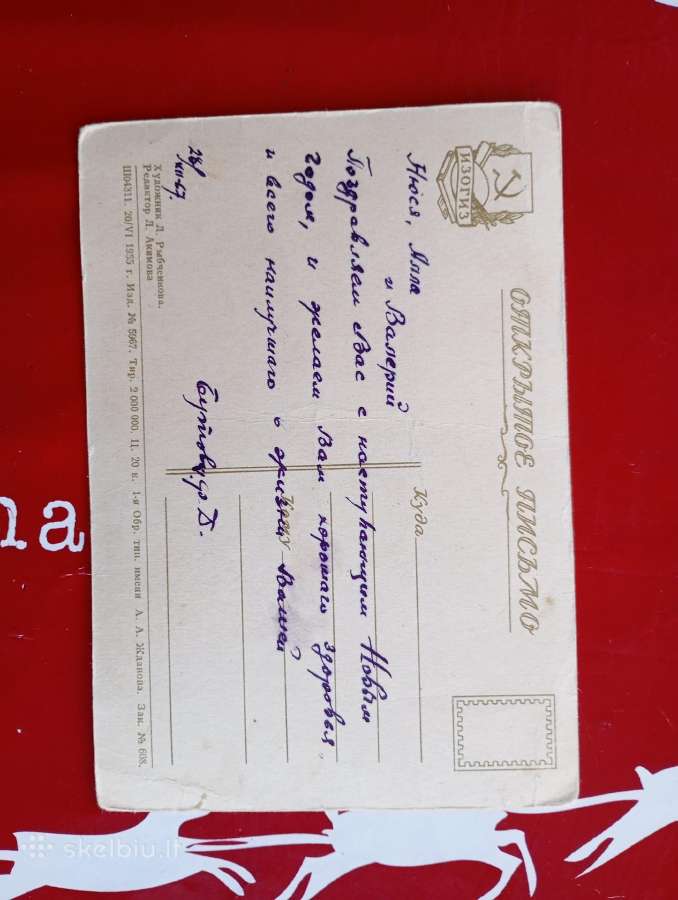 ИЗОГИЗ
ОТКРЫТОЕ ПИСЬМО
Куда
Кому
Нюся, Алла
и Валерий
Поздравляем Вас с наступающим Новым
годом, и желаем Вам хорошаго здоровья,
и всего наилучшаго в жизни Вашей
28/XII-57.
Художник Л. Рыбченкова.
Редактор Л. Акимова
Ш04311. 20/VI 1955 г. Изд. № 5967. Тир. 2 000 000. Ц. 20 к. 1-я Обр. тип. имени А. А. Жданова. Зак. № 608.
na
skelbiu.lt